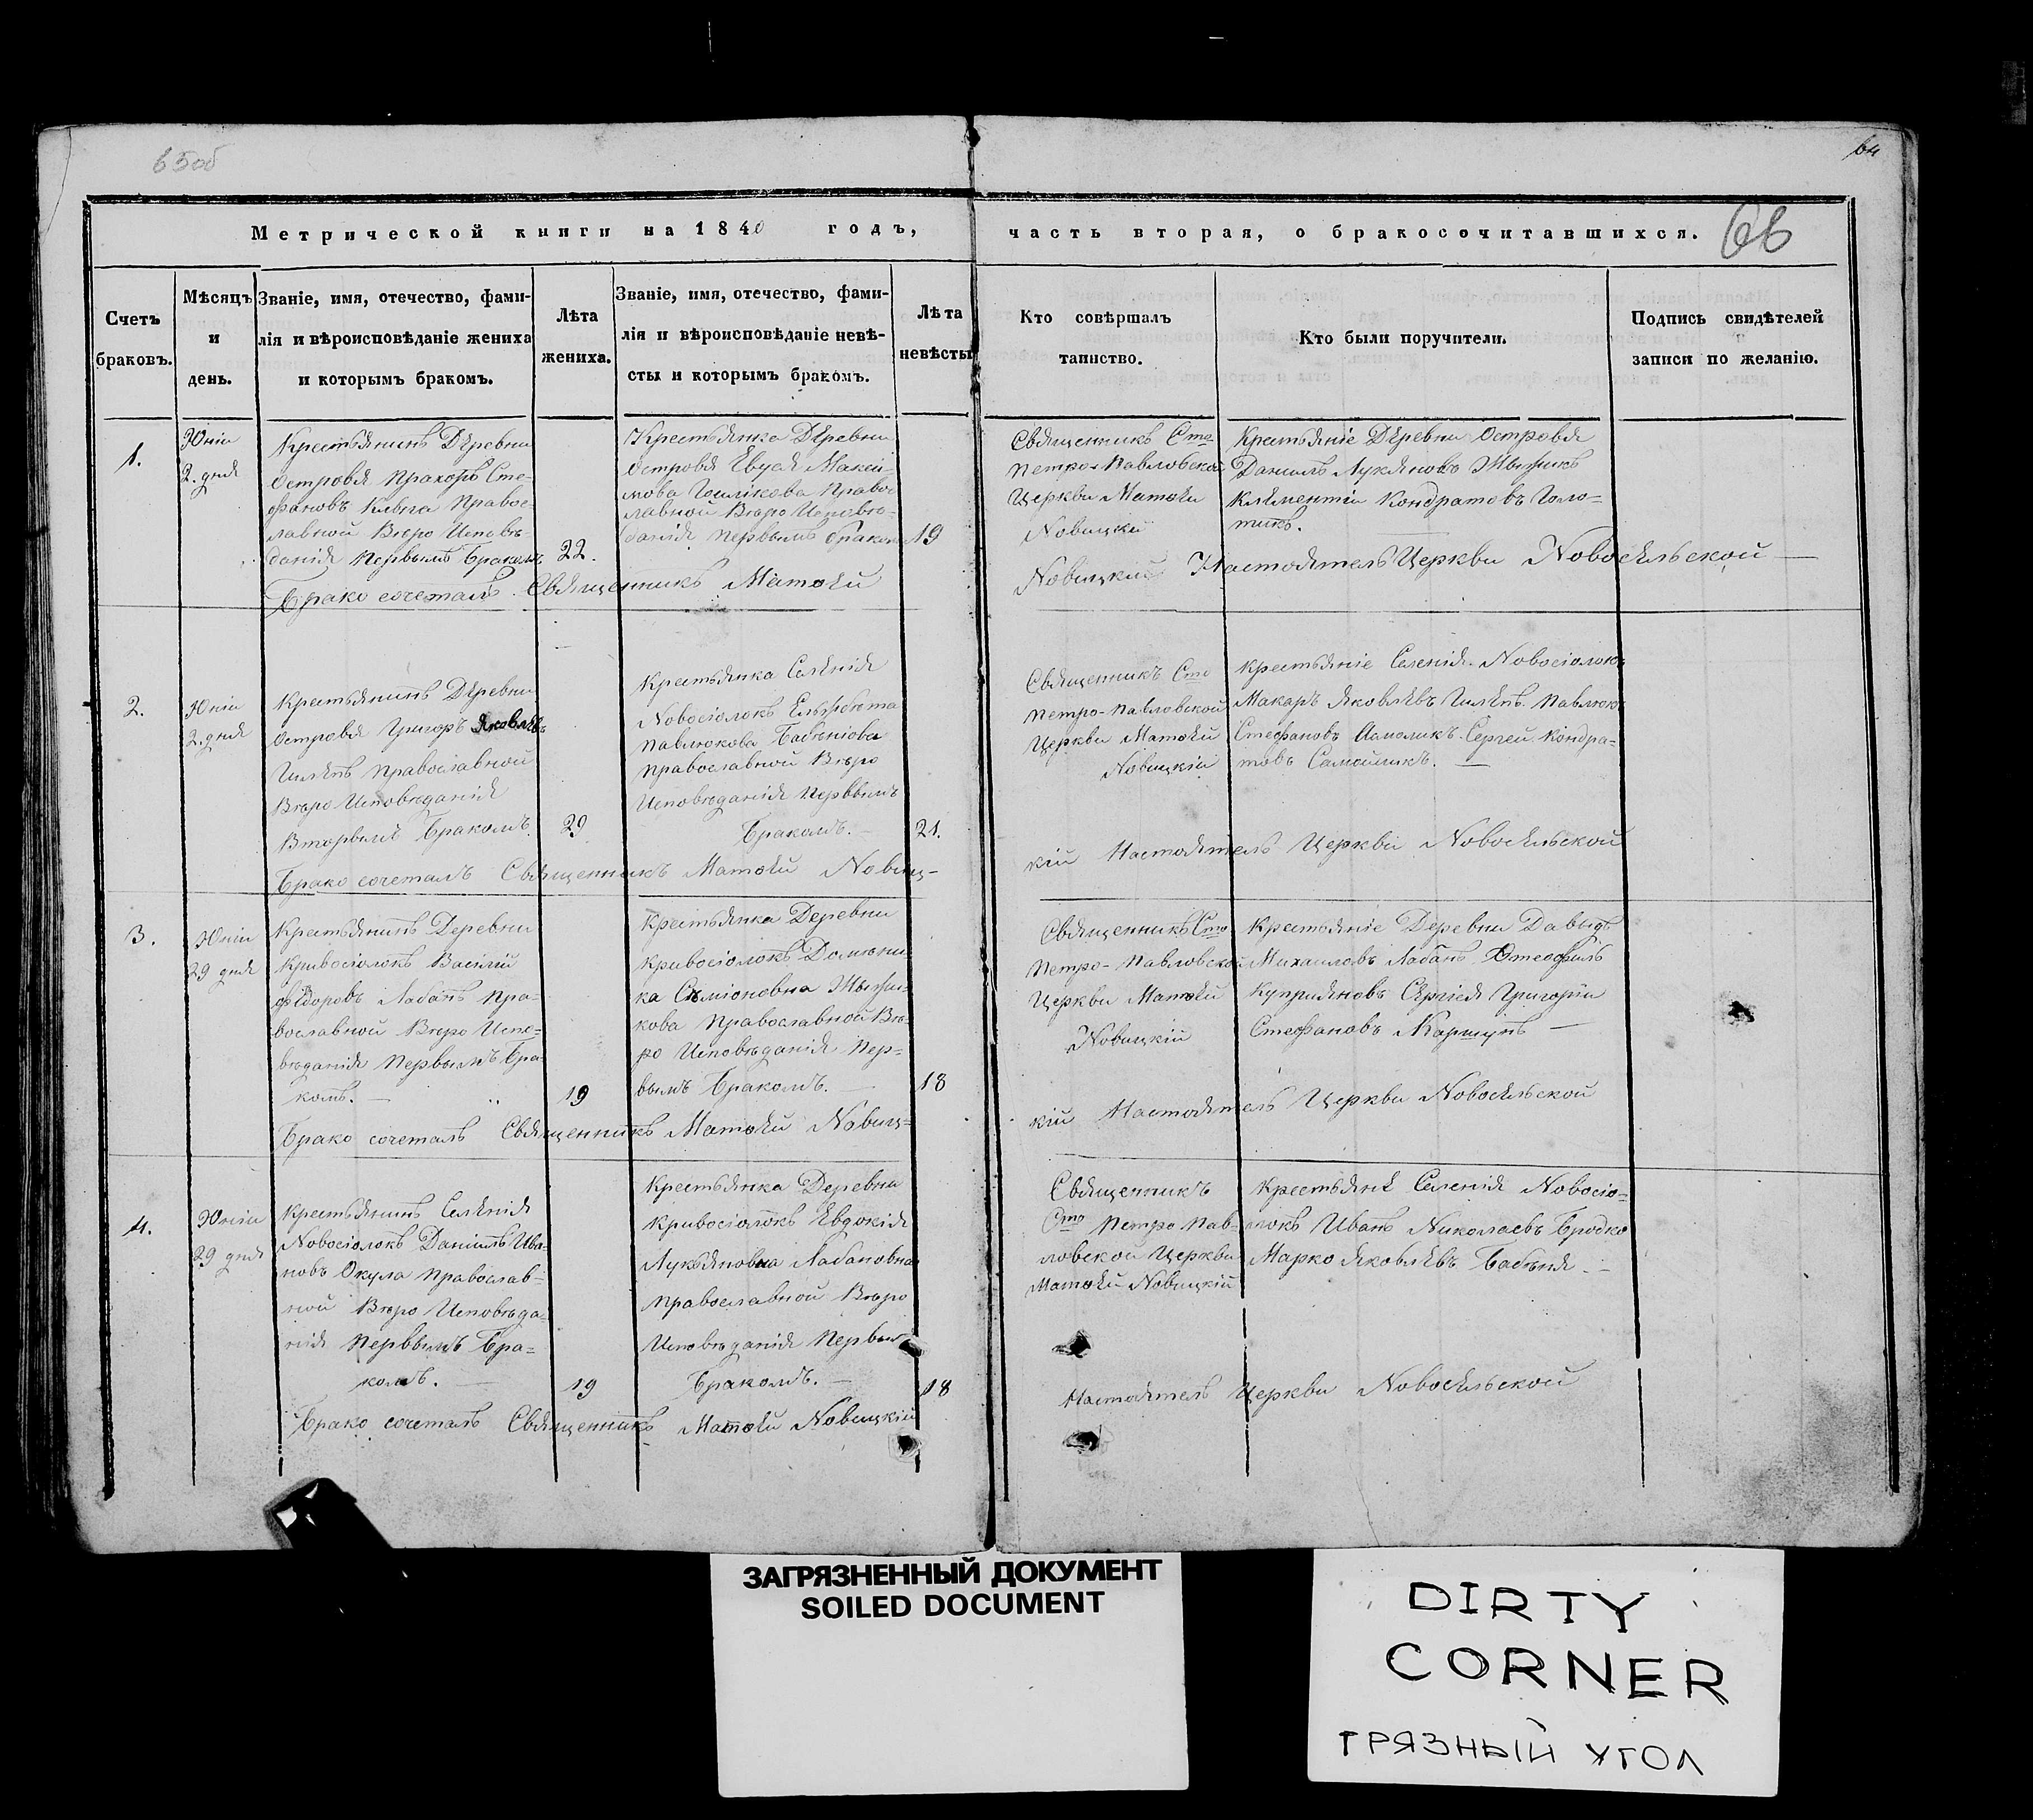 65об
64
66
Метрической книги на 1840 годъ,
часть вторая, о бракосочитавшихся.
Счетъ браковъ.
Мѣсяцъ и день.
Званіе, имя, отечество, фами-
лія и вѣроисповѣданіе жениха
и которымъ бракомъ.
Лѣта жениха.
Званіе, имя, отечество, фами-
лія и вѣроисповѣданіе невѣ-
сты и которымъ бракомъ.
Лѣта невѣсты
Кто совѣршалъ
таинство.
Кто были поручители.
Подпись свидѣтелей
записи по желанію.
1.
Юніи
2. дня
Крестьянинъ Деревни
Островя Прахоръ Сте-
фановъ Правос-
лавной Вѣро Исповѣ
данія Первымъ Бракомъ
22.
Крестьянка Деревни
Островя Макси-
мова Правос
лавной Вѣро Исповѣ-
данія Первымъ Бракомъ
19
Священникъ Сто
Петро-Павловской
Церкви Матѳей
Новицкій
Крестьяніе Деревни Островя
Данилъ Лукяновъ
Клементій Кондратовъ Голо-
тикъ.
Брако сочеталъ Священникъ Матѳей
Новицкий Настоятель Церкви Новосельской
2.
Юніи
2. дня
Крестьянинъ Деревни
Островя Григоръ Яковлевъ
Православной
Вѣро Исповѣданія
Вторымъ Бракомъ.
29
Крестьянка Селенія
Новосіолокъ
Павлюкова
Православной Вѣро
Исповѣданія Первымъ
Бракомъ.
21.
Священникъ Сто
Петро-Павловской
Церкви Матѳей
Новицкій
Крестьяніе Селенія Новосіолокъ
Макаръ Яковлевъ Павлюкъ
Стефановъ Сергей Кондра-
товъ Самойликъ.
Брако сочеталъ Священникъ Матѳей Новиц-
кій Настоятель Церкви Новосельской
3.
Юніи
29 дня
Крестьянинъ Деревни
Кривосіолокъ Василій
Фёдоровъ Лабанъ Пра-
вославной Вѣро Испо-
вѣданія Первымъ Бра-
комъ.
19
Крестьянка Деревни
Кривосіолокъ Домини-
ка Семіоновна
кова Православной Вѣ-
ро Исповѣданія Пер-
вымъ Бракомъ.
18
Священникъ Сто
Петро-Павловской
Церкви Матѳей
Новицкій
Крестьяніе Деревни Давидъ
Михаиловъ Лабанъ
Куприяновъ Григорій
Стефановъ Коршунъ
Брако сочеталъ Священникъ Матѳей Новиц-
кій Настоятель Церкви Новосельской
4.
Юніи
29 дня
Крестьянинъ Селенія
Новосіолокъ Даніилъ Ива-
новъ Окула Православ-
ной Вѣро Исповѣда-
нія Первымъ Бра-
комъ.
19
Крестьянка Деревни
Кривосіолокъ Евдокія
Лукьяновна Лабановна
Православной Вѣро
Исповѣданія Первым
Бракомъ.
18
Священникъ
Сто Петро Пав-
ловской Церкви
Матѳей Новицкій
Крестьяне Селенія Новосіо-
локъ Иванъ Николаевъ Бродко
Марко Яковлевъ Бабеня
Брако сочеталъ Священникъ Матѳей Новицкій
Настоятель Церкви Новосельской
ЗАГРЯЗНЕННЫЙ ДОКУМЕНТ
SOILED DOCUMENT
DIRTY
CORNER
ГРЯЗНЫЙ УГОЛ